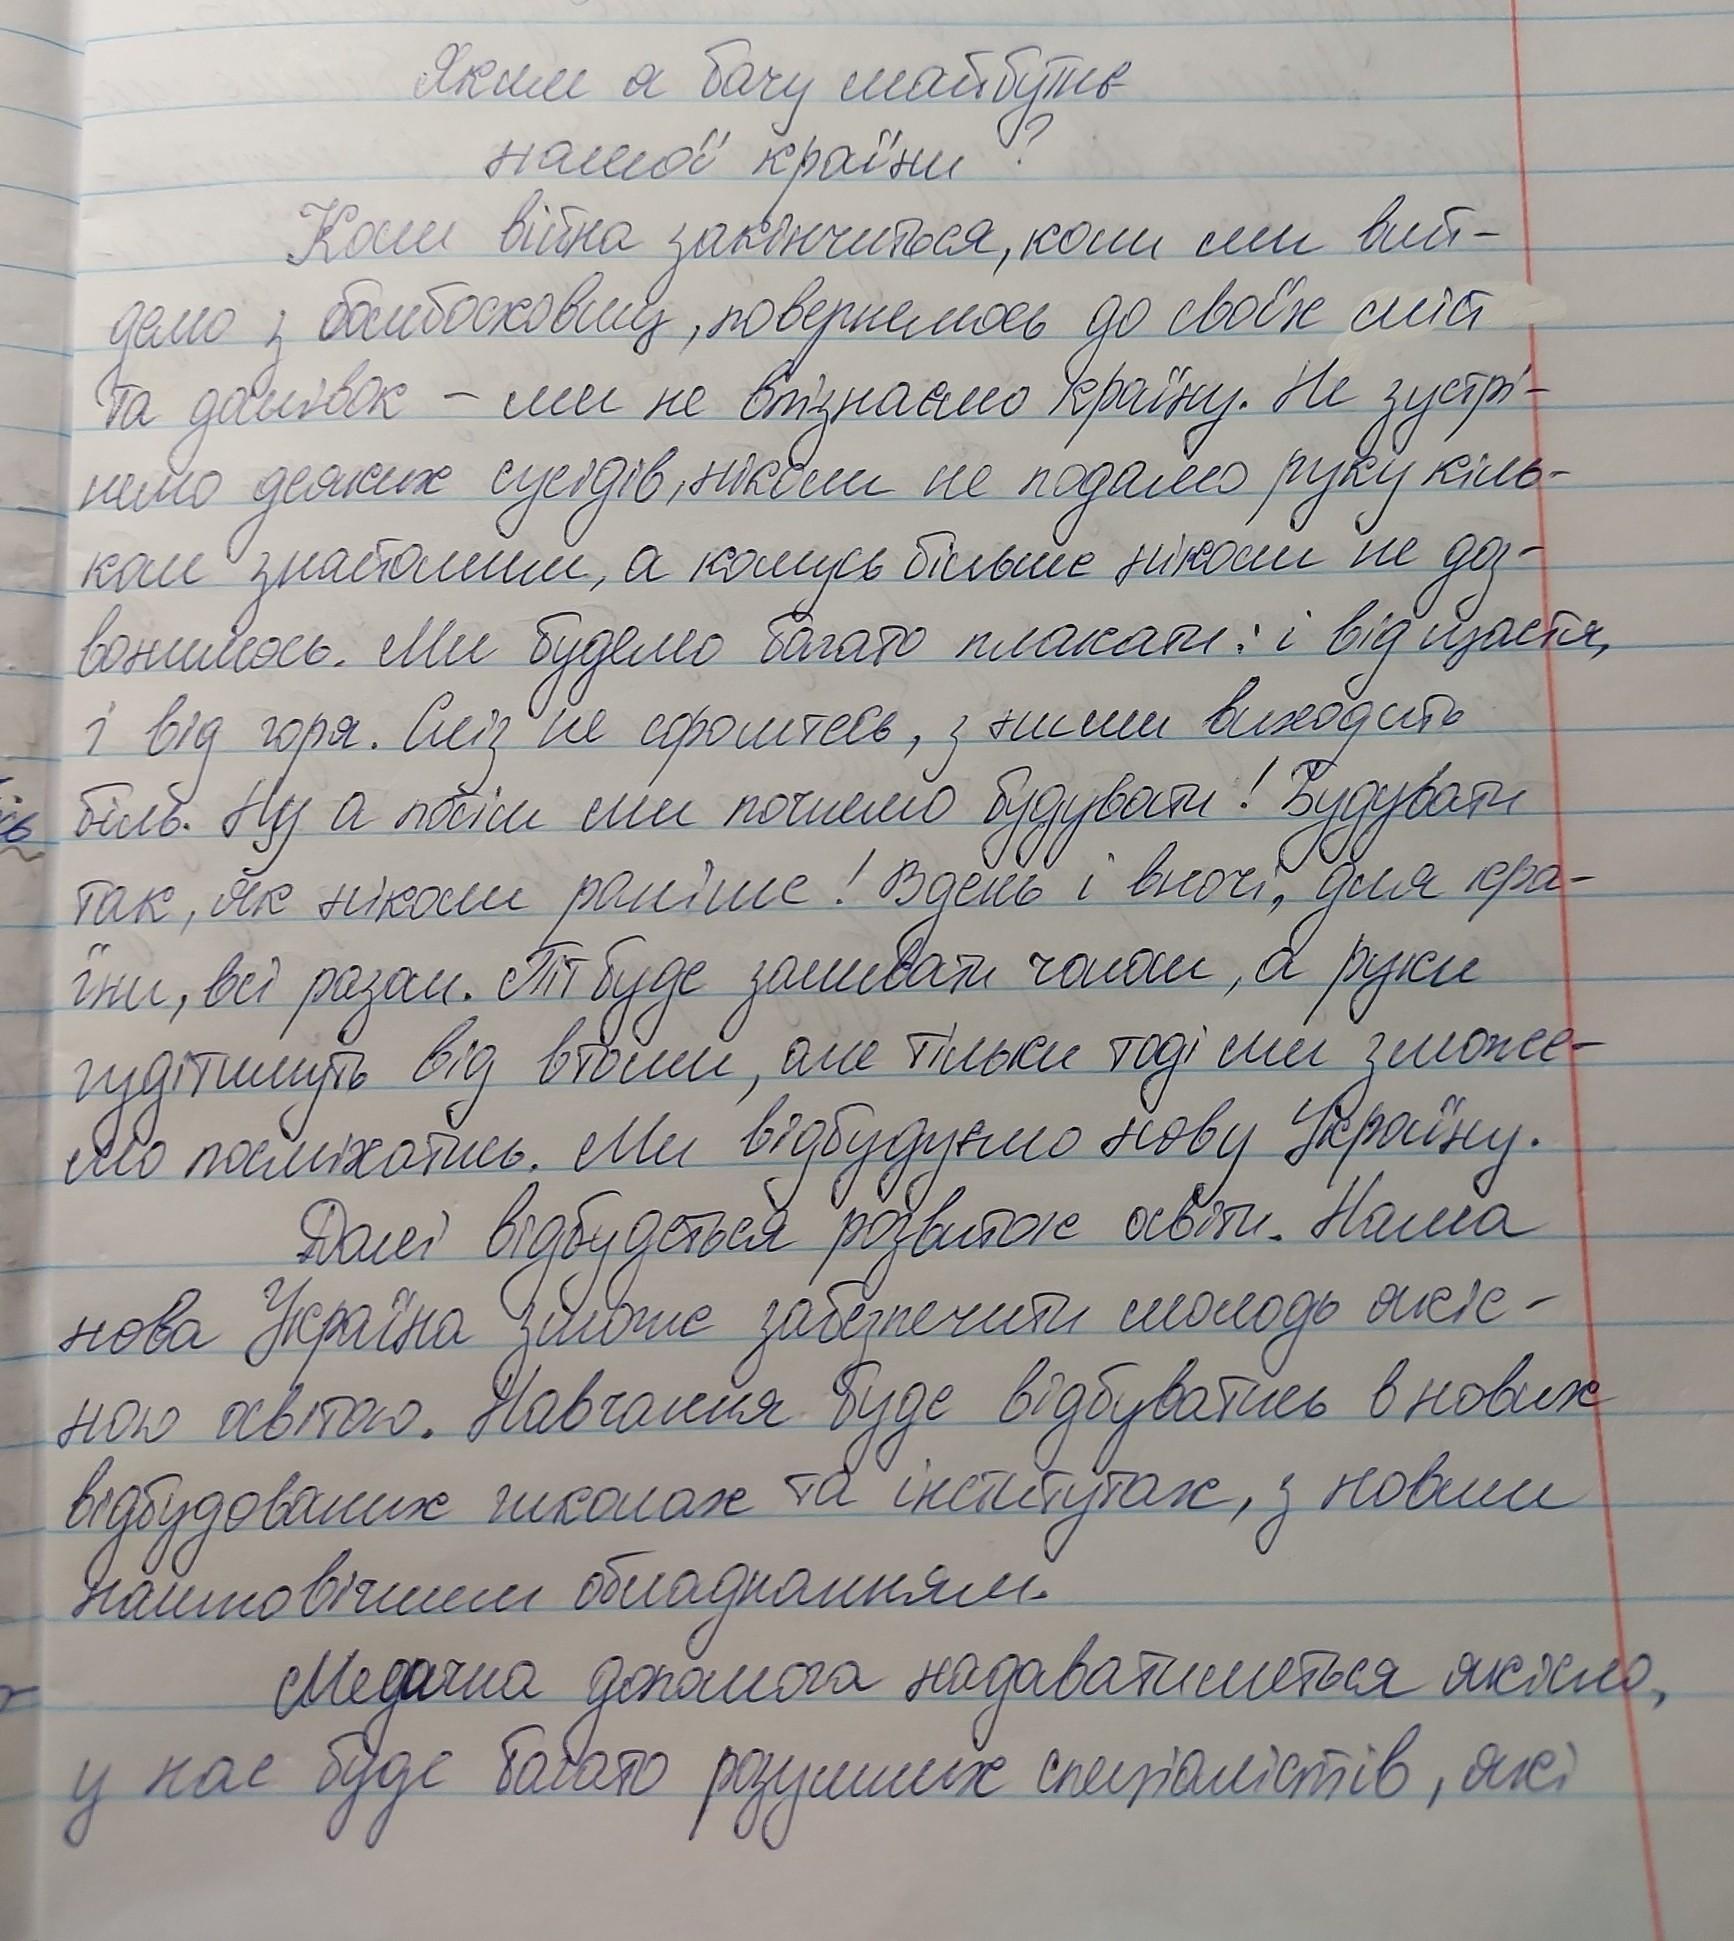 Яким я бачу майбутнє
нашої країни?
Коли війна закінчиться, коли ми вий-
демо з бомбосховищ, повернемось до своїх міст
та домівок – ми не впізнаємо країну. Не зустрі-
немо деяких сусідів, ніколи не подамо руку кіль-
ком знайомим, а комусь більше ніколи не доз-
вонимось. Ми будемо багато плакати: і від щастя,
і від горя. Сліз не сромтесь, з ними виходить
біль. Ну а потім ми почнемо будувати! Будувати
так, як ніколи раніше! Вдень і вночі, для кра-
їни, всі разом. Піт буде заливати чолом, а руки
гудітимуть від втоми, але тільки тоді ми зможе-
мо посміхатись. Ми відбудуємо нову Україну.
Далі відбудеться розвиток освіти. Наша
нова Україна зможе забезпечити молодь якіс-
ною освітою. Навчання буде відбуватись в нових
відбудованих школах та інститутах, з новим
обладнанням.
Медична допомога надаватиметься якісно,
у нас буде багато розумних спеціалістів, які